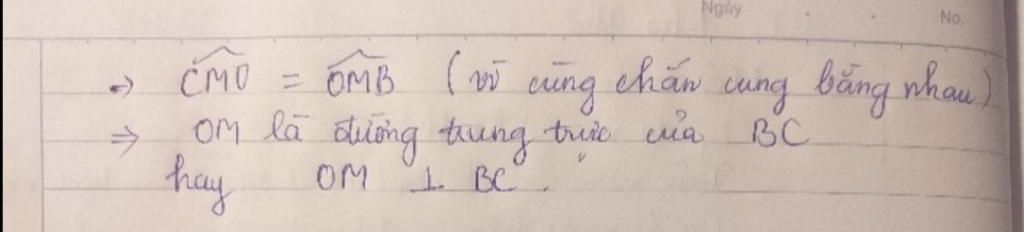 Ngày No.
→ \widehat{CMO} = \widehat{OMB} (vì cùng chắn cung bằng nhau)
⇒ OM là đường trung trực của BC
hay OM ⊥ BC.